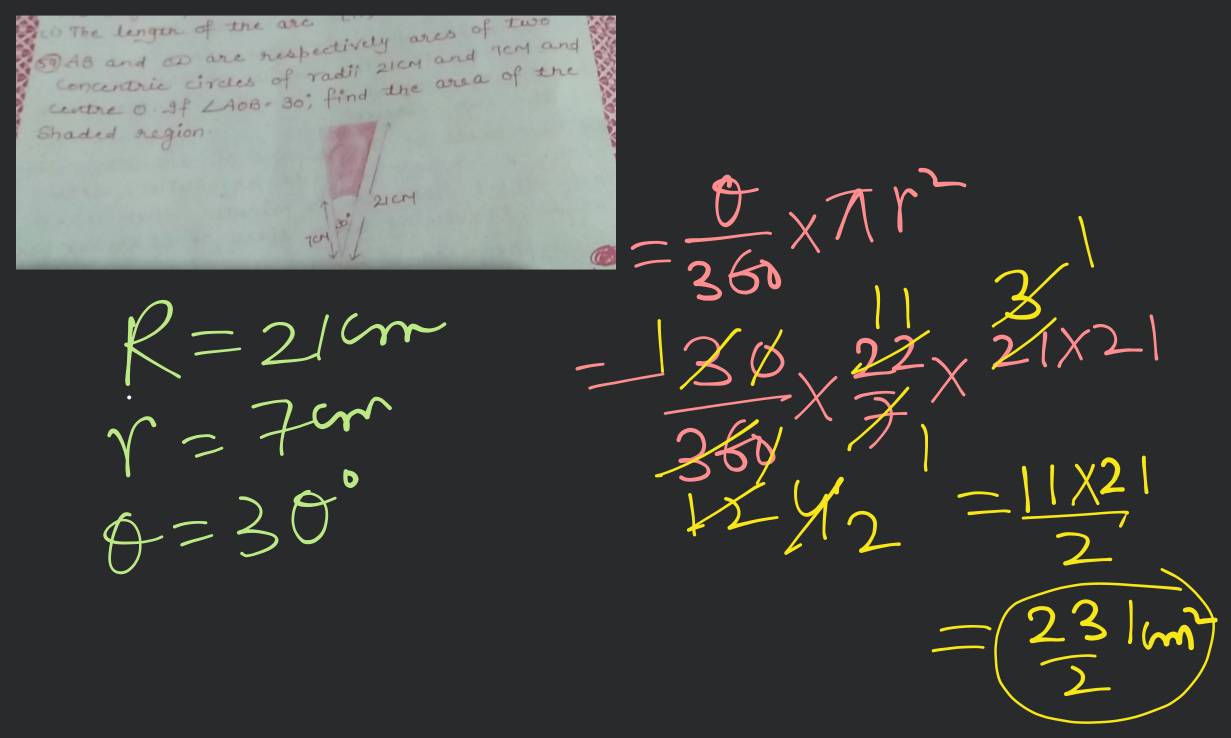 (i) The length of the arc
59 AB and CD are respectively arcs of two
concentric circles of radii 21CM and 7CM and
centre O. If ∠AOB = 30°, find the area of the
Shaded region.
21CM
30°
7CM
R = 21cm
r = 7cm
θ = 30°
= θ/360 × πr²
= 30/360 × 22/7 × 21×21
1 11 3 1
12 1 4 2
= 11×21/2
= 231/2 cm²